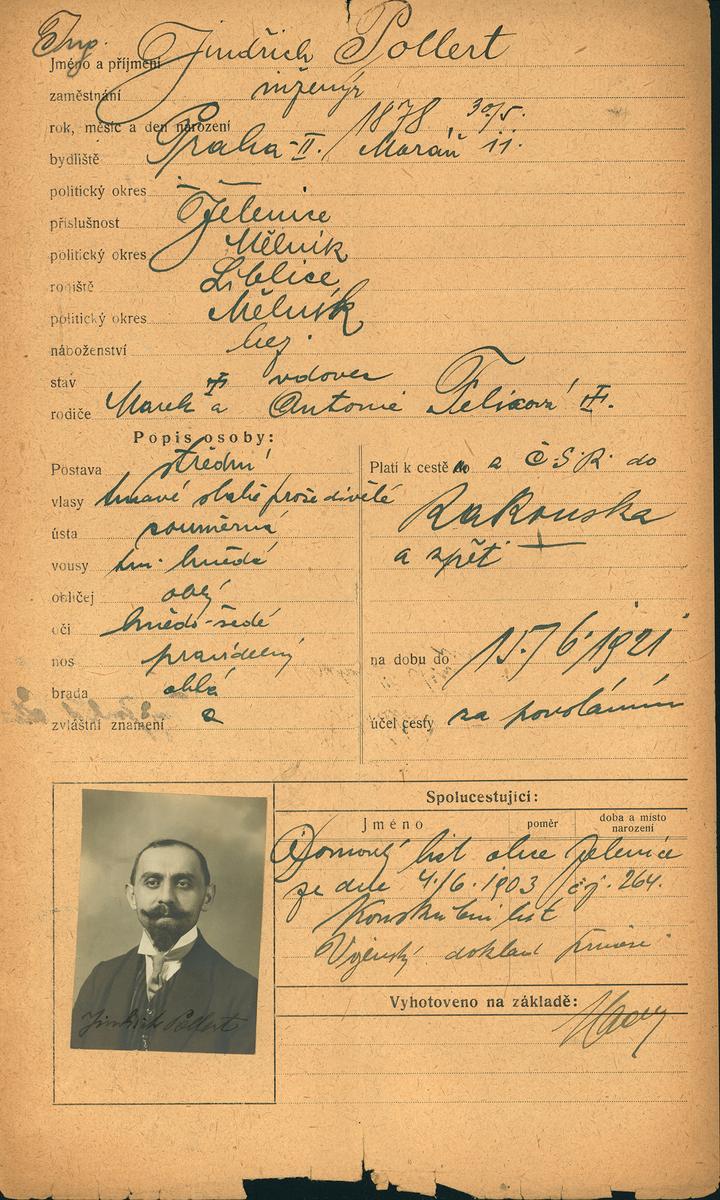 Ing. Jindřich Pollert
Jméno a příjmení
zaměstnání inženýr
rok, měsíc a den narození 1878 30/5.
bydliště Praha-II. Moráň 11.
politický okres
příslušnost Jelenice
politický okres Mělník
rodiště Liblice
politický okres Mělník
náboženství bez.
stav vdovec
rodiče Marek a Antonie Felixová
Popis osoby:
Postava střední
vlasy tmavé slabě prošedivělé
ústa souměrná
vousy tm. hnědé
obličej obly
oči hnědo-šedé
nos pravidelný
brada oblá
zvláštní znamení
Platí k cestě a Č.S.R. do
Rakouska
a zpět
na dobu do 15./6. 1921
účel cesty za povoláním
Spolucestující:
Jméno poměr doba a místo narození
Domovský list obce Jelenice
ze dne 4./6. 1903 čj. 264.
list
Vojenský doklad
Vyhotoveno na základě:
Jindřich Pollert